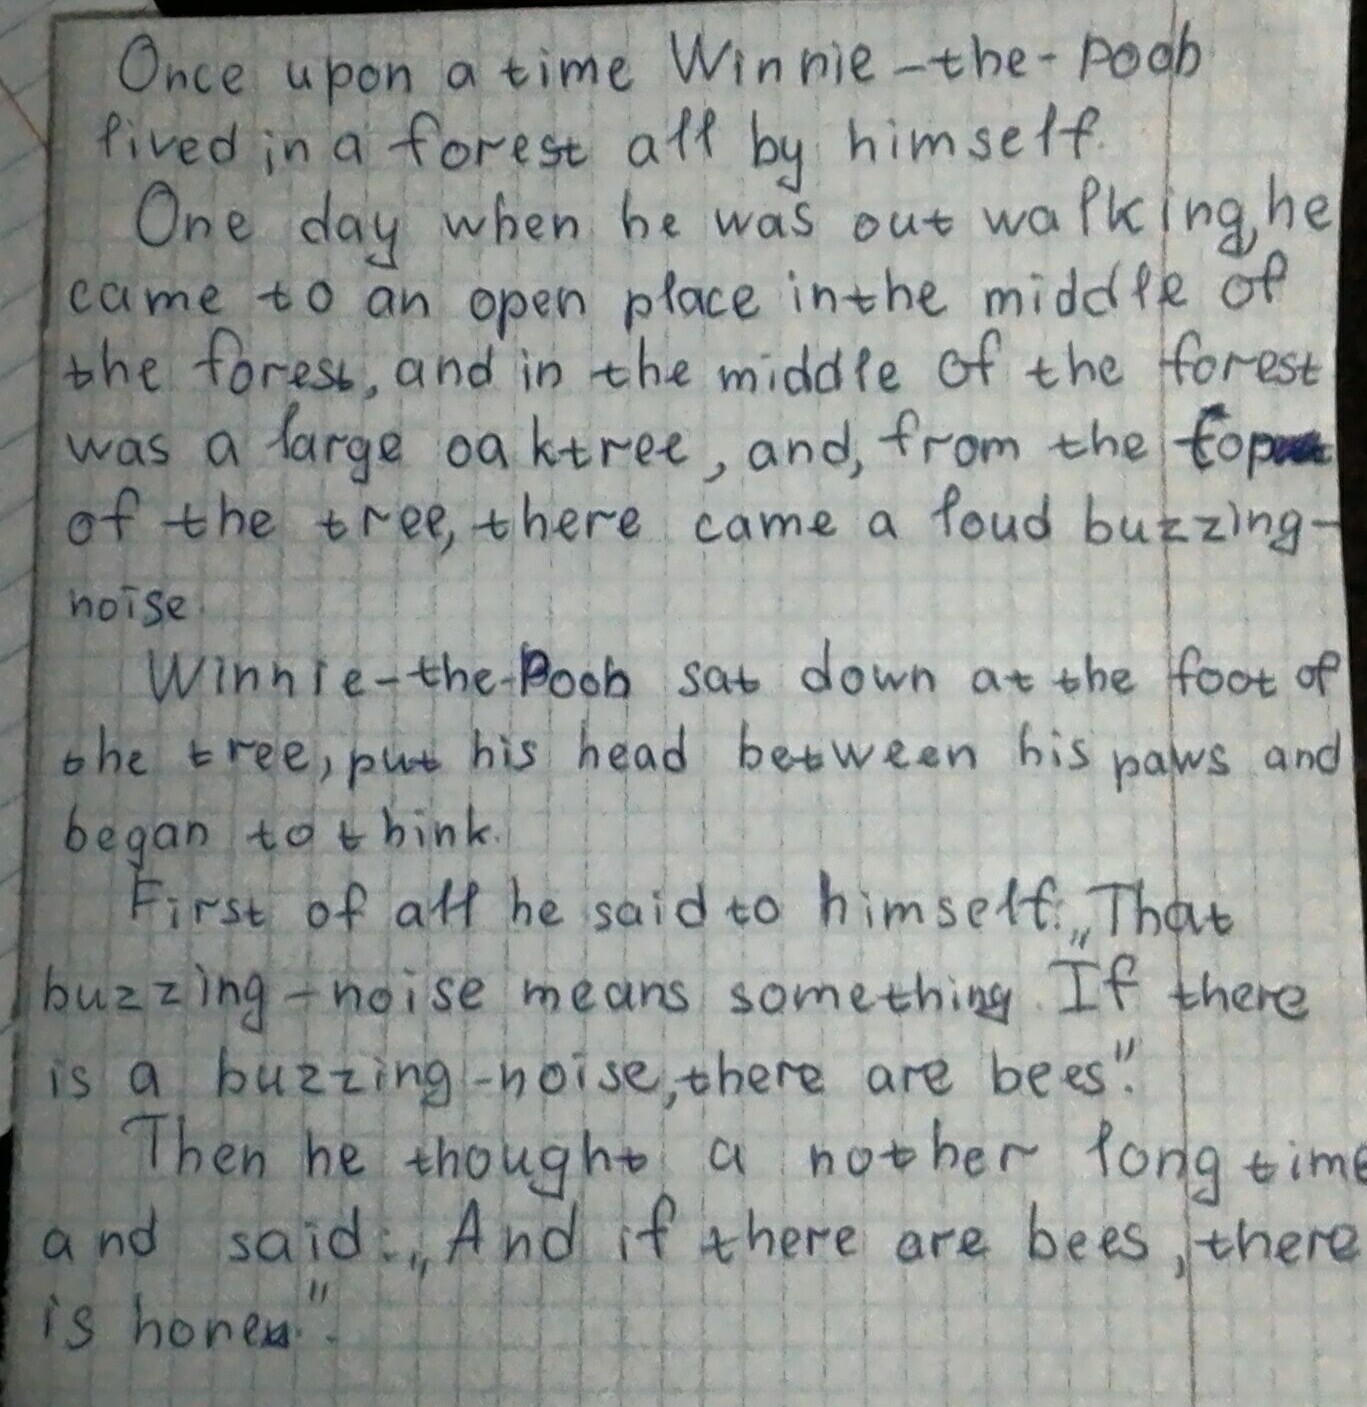 Once upon a time Winnie-the-Pooh
lived in a forest all by himself.
One day when he was out walking, he
came to an open place in the middle of
the forest, and in the middle of the forest
was a large oak tree, and, from the top
of the tree, there came a loud buzzing-
noise.
Winnie-the-Pooh sat down at the foot of
the tree, put his head between his paws and
began to think.
First of all he said to himself: „That
buzzing-noise means something. If there
is a buzzing-noise, there are bees".
Then he thought a nother long time
and said: „And if there are bees, there
is honey".